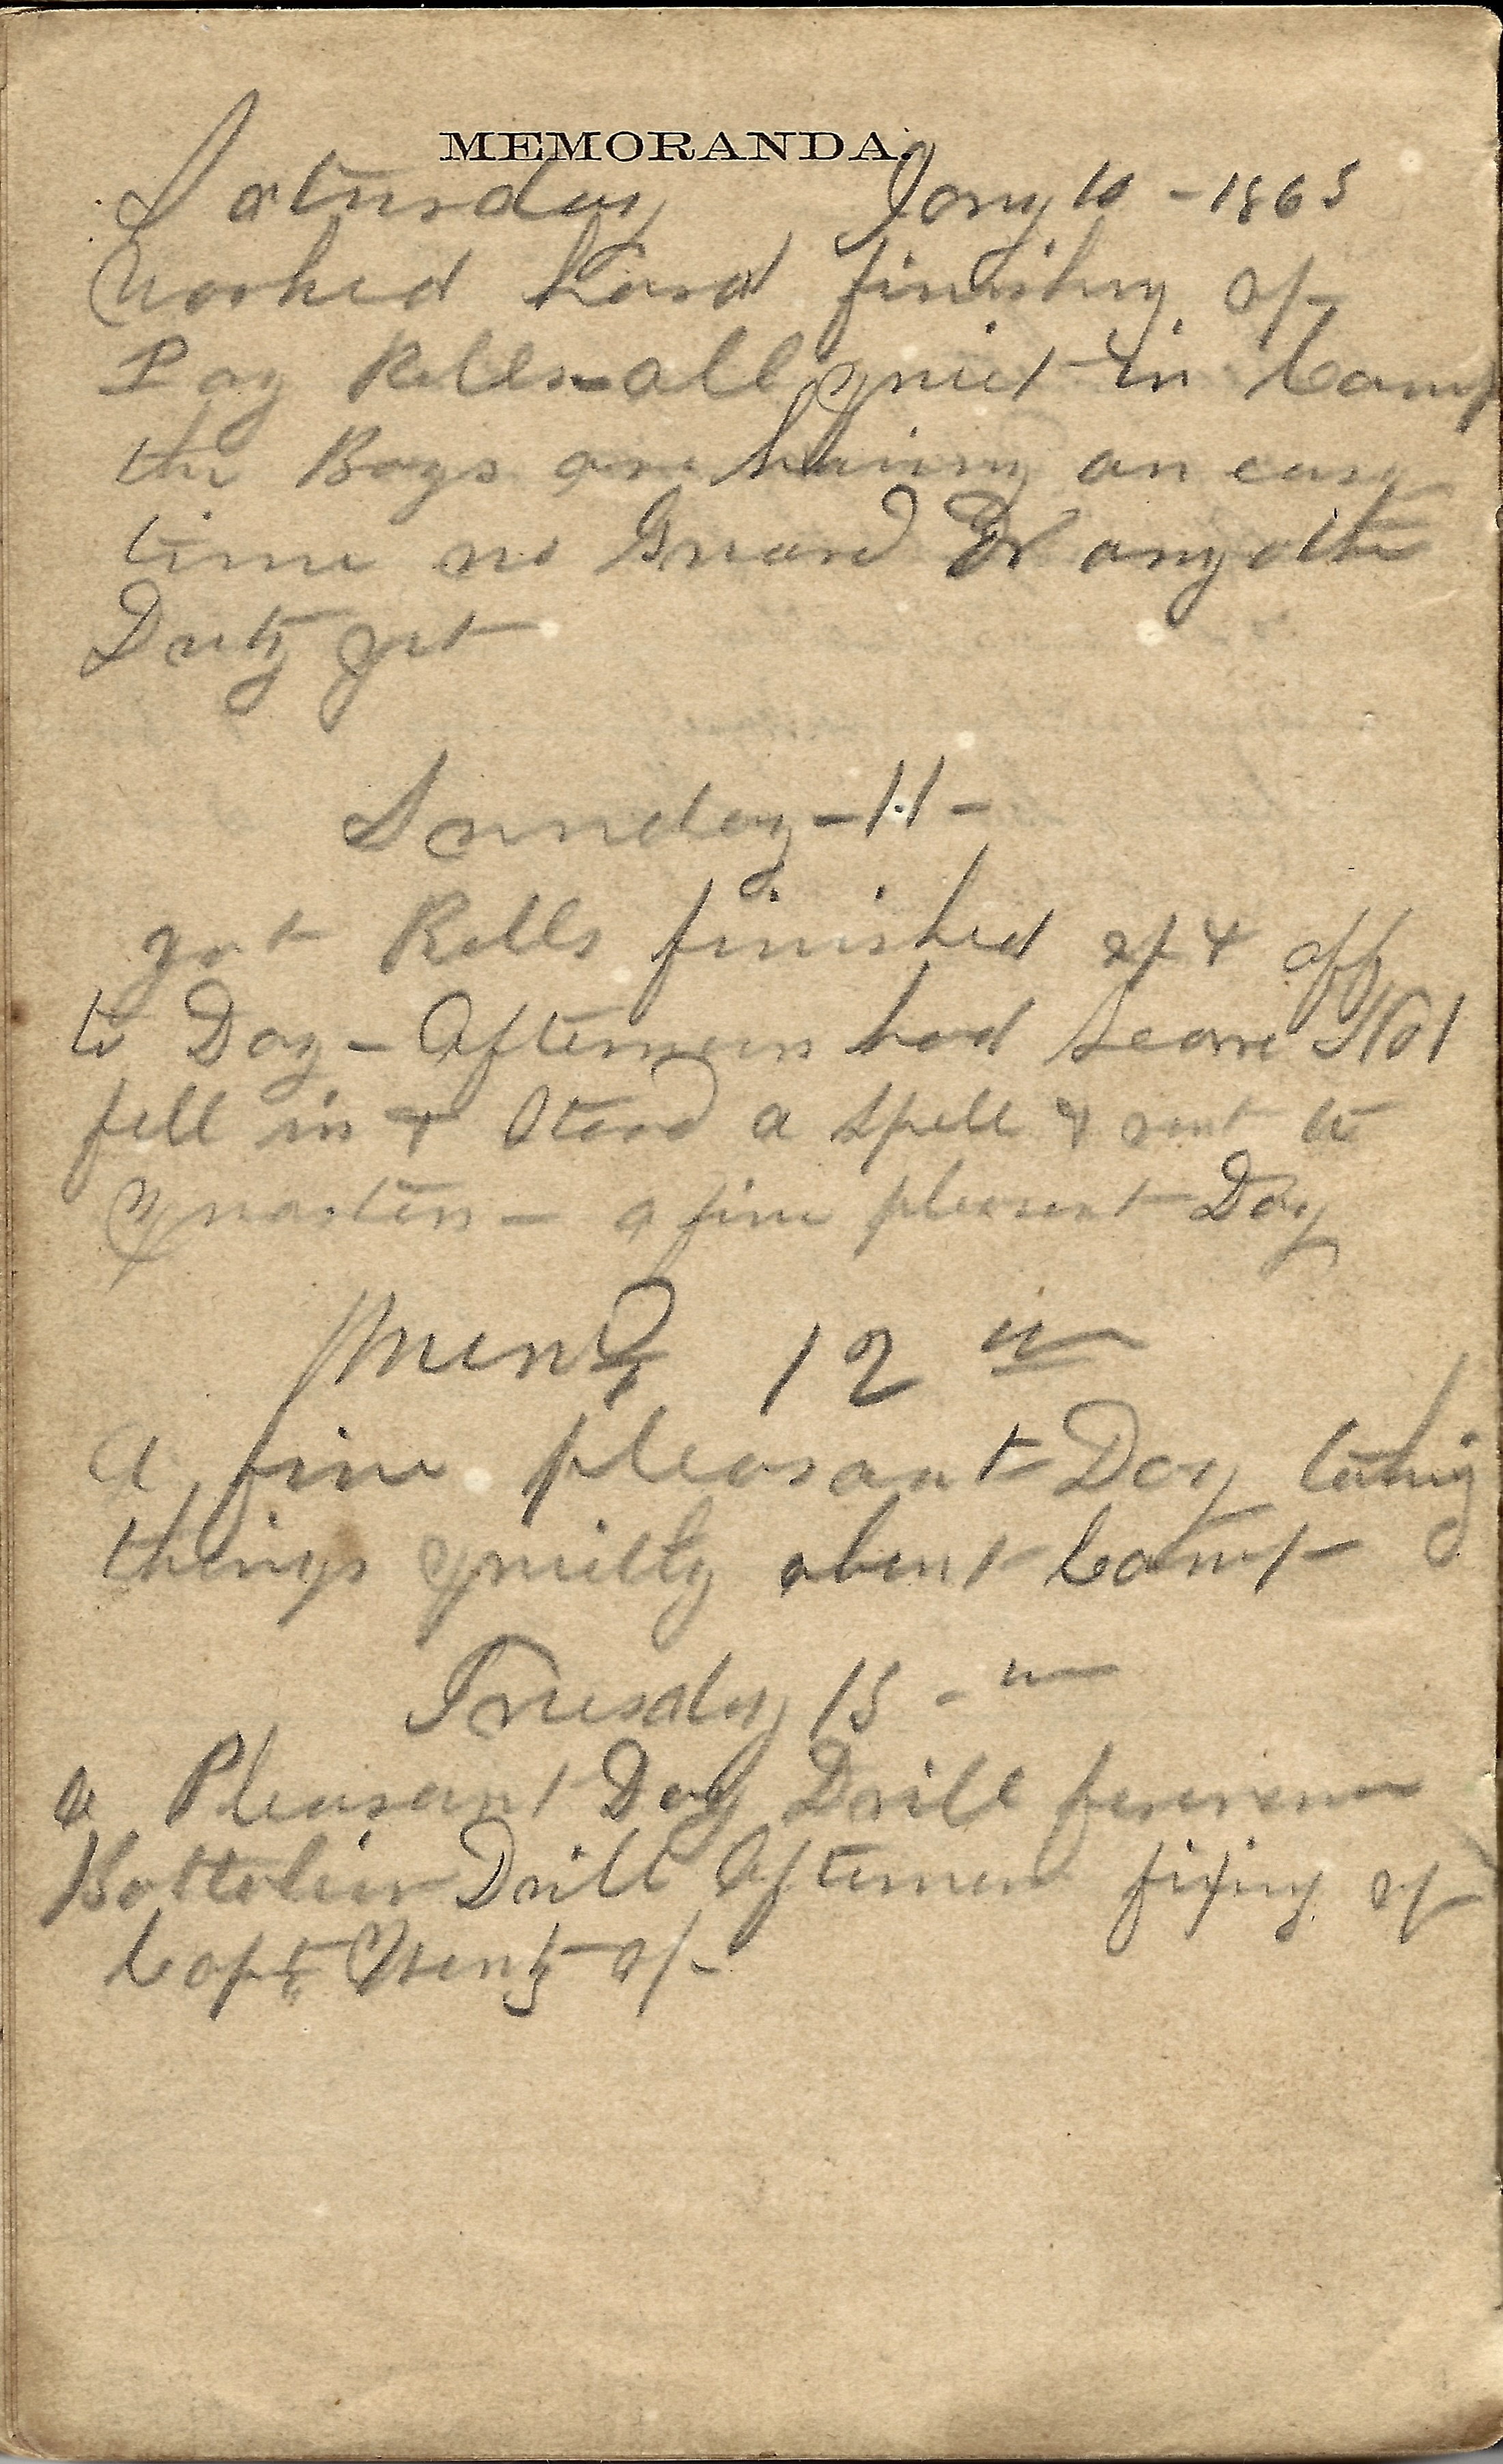 MEMORANDA.
Saturday Jany 10 - 1863
Worked hard finishing up
Pay Rolls - all quiet in Camp
the Boys are having an easy
time no Guard or any other
Duty yet
Sunday - 11 -
got Rolls finished up & off
to Day - Afternoon had Scare No 1
fell in & Stood a Spell & went to
Quarters - a fine pleasant Day
Mond 12 th
a fine pleasant Day taking
things quietly about Camp
Tuesday 13 - th
a Pleasant Day Drill forenoon
Battalion Drill Afternoon fixing up
Capt up